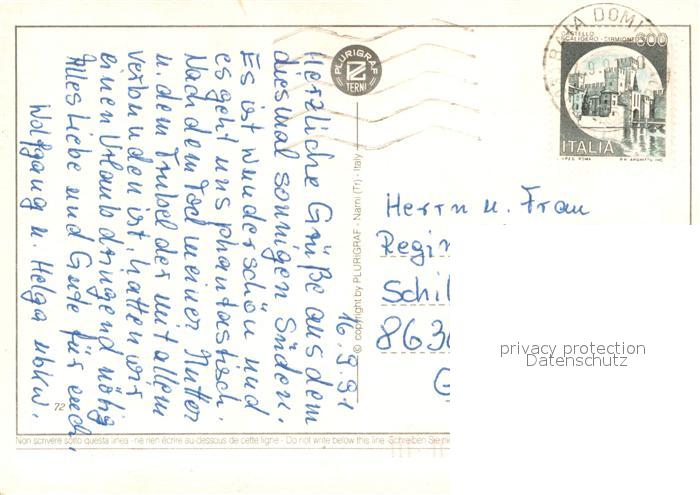 16.9.91
Herzliche Grüße aus dem
diesmal sonnigen Süden.
Es ist wunderschön und
es geht uns phantastisch.
Nach dem Tod meiner Mutter
u. dem Trubel der mit allem
verbunden ist, hatten wir
einen Urlaub dringend nötig
Alles Liebe und Gute für euch,
Wolfgang u. Helga
PLURIGRAF
TERNI
© copyright by PLURIGRAF - Narni (Tr) - Italy
BAIA DOMI
CASTELLO
SCALIGERO - SIRMIONE
600
ITALIA
I.P.Z.S. ROMA
Herrn u. Frau
Regin
Schil
863
G
privacy protection
Datenschutz
72
Non scrivere sotto questa linea - ne rien écrire au-dessous de cette ligne - Do not write below this line - Schreiben Sie